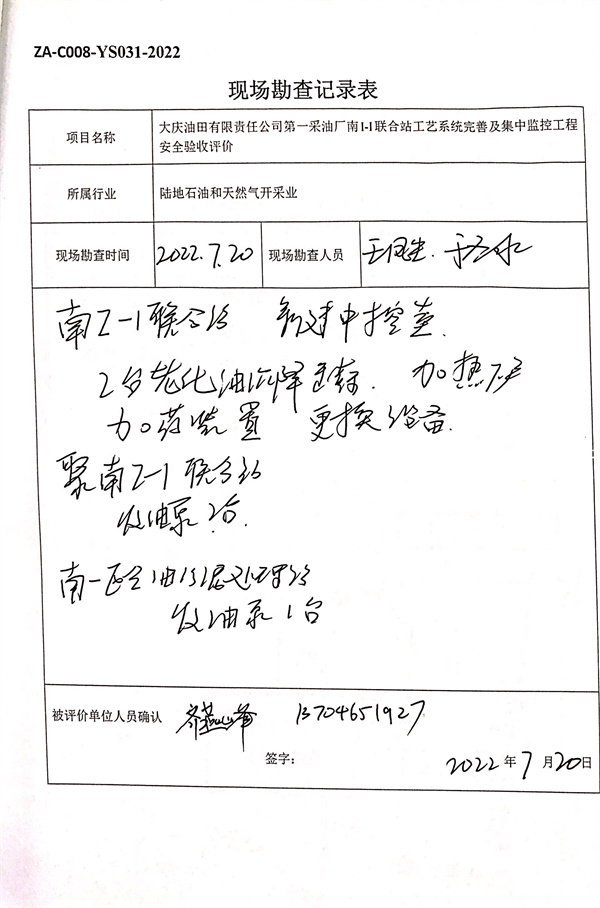 ZA-C008-YS031-2022
现场勘查记录表
项目名称
大庆油田有限责任公司第一采油厂南1-1联合站工艺系统完善及集中监控工程
安全验收评价
所属行业
陆地石油和天然气开采业
现场勘查时间
2022.7.20
现场勘查人员
南I-1联合站 新建中控室.
2台老化油沉降 加热炉
加药装置 更换设备.
聚南I-1联合站
收油泵2台.
南一区含油污泥处理站
收油泵1台
被评价单位人员确认
13704651927
签字:
2022年7月20日